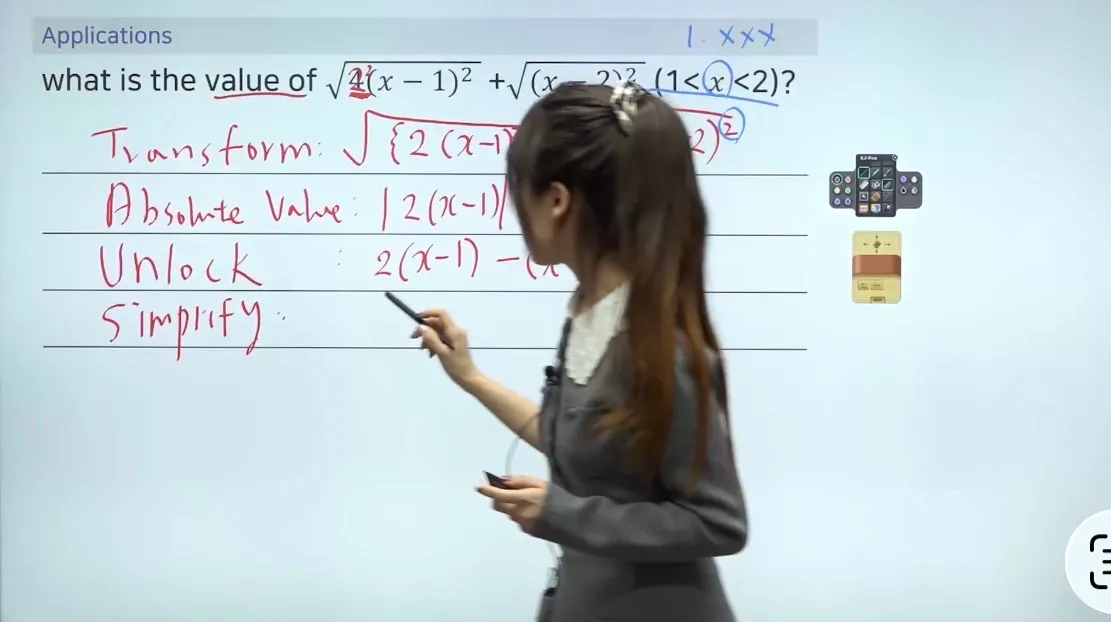 Applications
1. xxx
what is the value of √4(x − 1)² + √(x − 2)² (1<x<2)?
Transform: √{2(x-1) 2)²
Absolute Value: |2(x-1)|
Unlock : 2(x-1) -(x
Simplify: